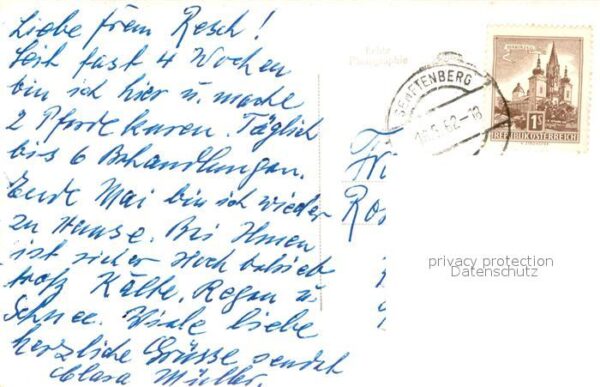 Liebe Frau Resch!
Seit fast 4 Wochen
bin ich hier u. mache
2 Pferdekuren. Täglich
bis 6 Behandlungen.
Ende Mai bin ich wieder
zu Hause. Bei Ihnen
ist sicher Hochbetrieb
trotz Kälte, Regen u.
Schnee. Viele liebe
herzliche Grüsse sendet
Clara Müller.
Echte
Photographie
SENFTENBERG
62-18
MARIAZELL
1S
REPUBLIK ÖSTERREICH
Fr
Ro
privacy protection
Datenschutz